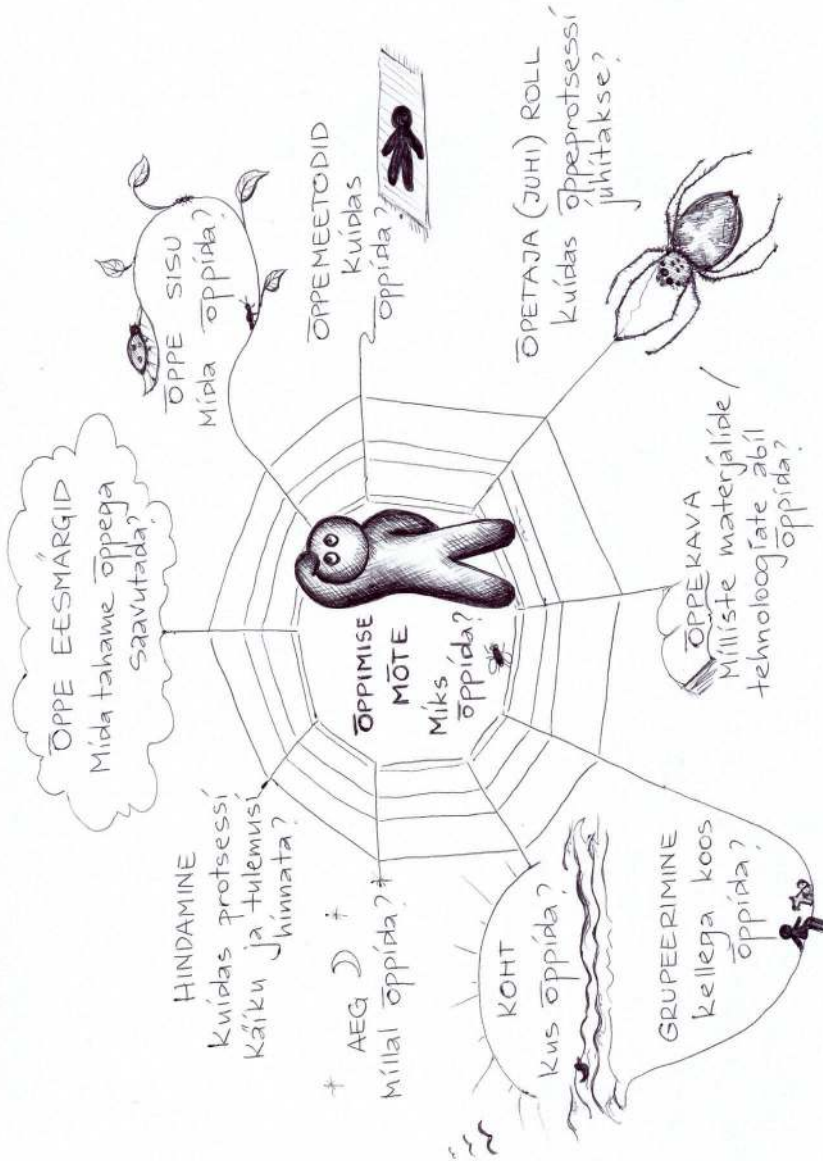 ÕPPIMISE
MÕTE
Miks
õppida?
ÕPPE EESMÄRGID
Mida tahame õppega
saavutada?
ÕPPE SISU
Mida õppida?
ÕPPEMEETODID
Kuidas
õppida?
ÕPETAJA (JUHI) ROLL
Kuidas õppeprotsessi
juhitakse?
ÕPPEKAVA
Milliste materjalide/
tehnoloogiate abil
õppida?
GRUPEERIMINE
Kellega koos
õppida?
KOHT
Kus õppida?
AEG
Millal õppida?
HINDAMINE
Kuidas protsessi
käiku ja tulemusi
hinnata?